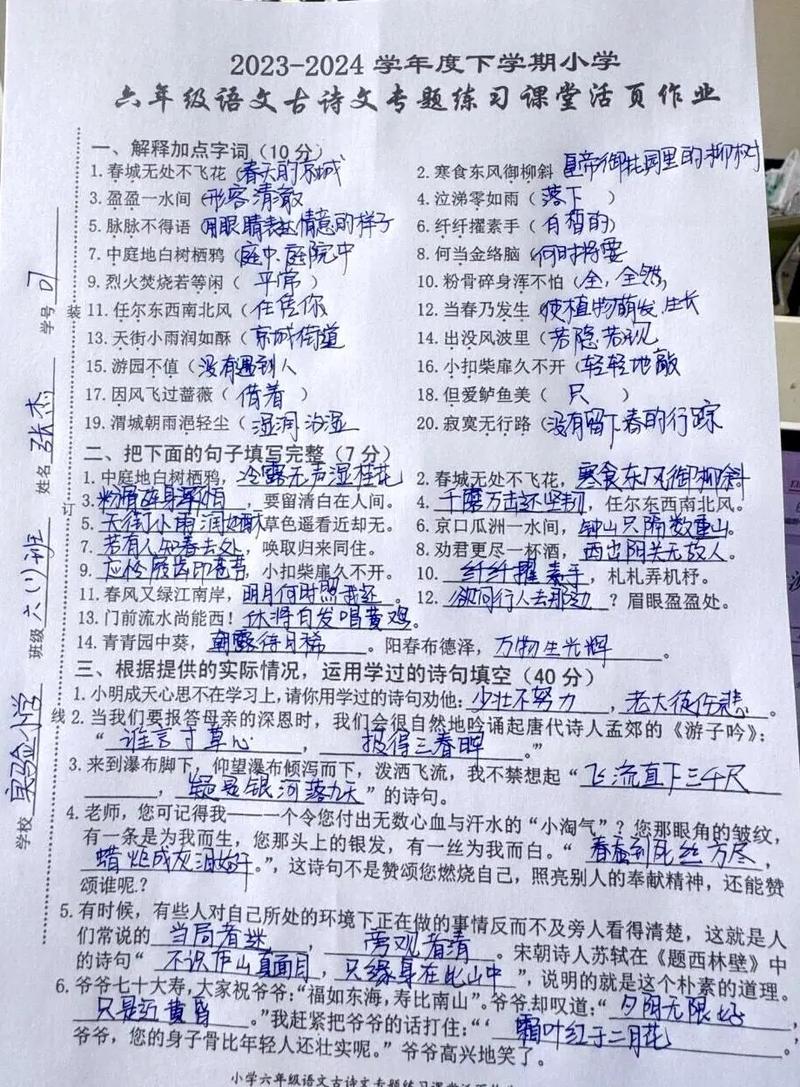 2023-2024 学年度下学期小学
六年级语文古诗文专题练习课堂活页作业
学校 实验小学 班级 六(1)班 姓名 张杰 学号
装 订 线
一、解释加点字词（10 分）
1. 春城无处不飞花（春天的京城 2. 寒食东风御柳斜 皇帝御花园里的柳树
3. 盈盈一水间（形容清澈 4. 泣涕零如雨（ 落下 ）
5. 脉脉不得语（用眼睛表达情意的样子 6. 纤纤擢素手（ 白皙的）
7. 中庭地白树栖鸦（庭中、庭院中 8. 何当金络脑（何时将要
9. 烈火焚烧若等闲（ 平常 ） 10. 粉骨碎身浑不怕（全，全然，
11. 任尔东西南北风（任凭你 12. 当春乃发生（使植物萌发、生长
13. 天街小雨润如酥（京城街道 14. 出没风波里（若隐若现
15. 游园不值（没有遇到人 16. 小扣柴扉久不开（轻轻地敲
17. 因风飞过蔷薇（ 借着 ） 18. 但爱鲈鱼美（ 只 ）
19. 渭城朝雨浥轻尘（湿润 沾湿 20. 寂寞无行路（没有留下春的行踪
二、把下面的句子填写完整（7 分）
1. 中庭地白树栖鸦，冷露无声湿桂花 2. 春城无处不飞花，寒食东风御柳斜
3. 粉骨碎身浑不怕，要留清白在人间。 4. 千磨万击还坚韧，任尔东西南北风。
5. 天街小雨润如酥草色遥看近却无。 6. 京口瓜洲一水间，钟山只隔数重山。
7. 若有人知春去处，唤取归来同住。 8. 劝君更尽一杯酒，西出阳关无故人。
9. 应怜屐齿印苍苔，小扣柴扉久不开。 10. 纤纤擢素手，札札弄机杼。
11. 春风又绿江南岸，明月何时照我还。 12. 欲问行人去那边？眉眼盈盈处。
13. 门前流水尚能西！休将白发唱黄鸡。
14. 青青园中葵，朝露待日稀。阳春布德泽，万物生光辉。
三、根据提供的实际情况，运用学过的诗句填空（40 分）
1. 小明成天心思不在学习上，请你用学过的诗句劝他：少壮不努力，老大徒伤悲。
2. 当我们要报答母亲的深恩时，我们会很自然地吟诵起唐代诗人孟郊的《游子吟》：
“ 谁言寸草心，报得三春晖。”
3. 来到瀑布脚下，仰望瀑布倾泻而下，泼洒飞流，我不禁想起“ 飞流直下三千尺
，疑是银河落九天”的诗句。
4. 老师，您可记得我——一个令您付出无数心血与汗水的“小淘气”？您那眼角的皱纹，
有一条是为我而生，您那头上的银发，有一丝为我而白。“ 春蚕到死丝方尽，
蜡炬成灰泪始干。”，这诗句不是赞颂您燃烧自己，照亮别人的奉献精神，还能赞
颂谁呢？
5. 有时候，有些人对自己所处的环境下正在做的事情反而不及旁人看得清楚，这就是人
们常说的 当局者迷，旁观者清。宋朝诗人苏轼在《题西林壁》中
的诗句“ 不识庐山真面目，只缘身在此山中”，说明的就是这个朴素的道理。
6. 爷爷七十大寿，大家祝爷爷：“福如东海，寿比南山”。爷爷却叹道：“ 夕阳无限好，
只是近黄昏。”我赶紧把爷爷的话打住：“‘ 霜叶红于二月花。
爷爷，您的身子骨比年轻人还壮实呢。”爷爷高兴地笑了。
小学六年级语文古诗文专题练习课堂活页作业